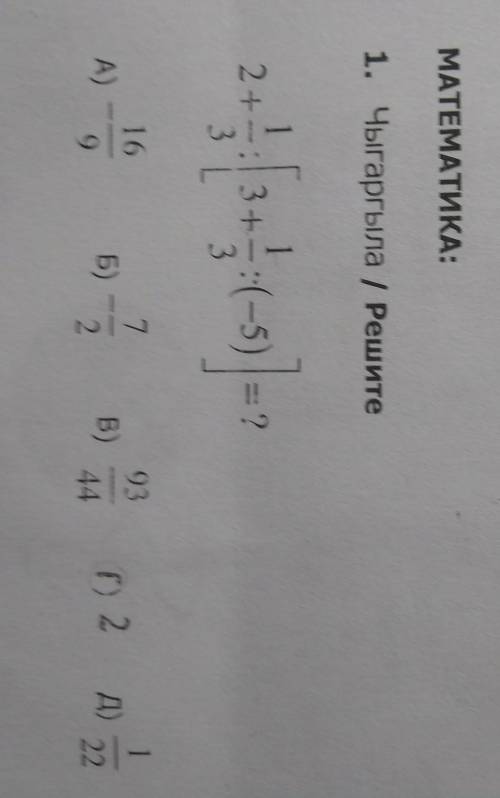 МАТЕМАТИКА:
1. Чыгаргыла / Решите
2 + 1/3 : [3 + 1/3 : (−5)] = ?
А) −16/9 Б) −7/2 В) 93/44 Г) 2 Д) 1/22